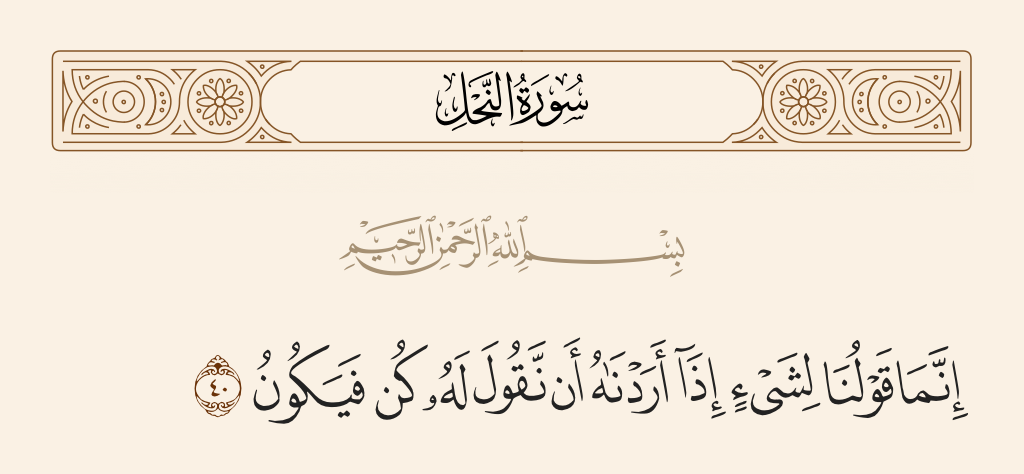 سُورَةُ النَّحْلِ
بِسْمِ ٱللَّهِ ٱلرَّحْمَٰنِ ٱلرَّحِيمِ
إِنَّمَا قَوْلُنَا لِشَىْءٍ إِذَآ أَرَدْنَٰهُ أَن نَّقُولَ لَهُۥ كُن فَيَكُونُ ٤٠